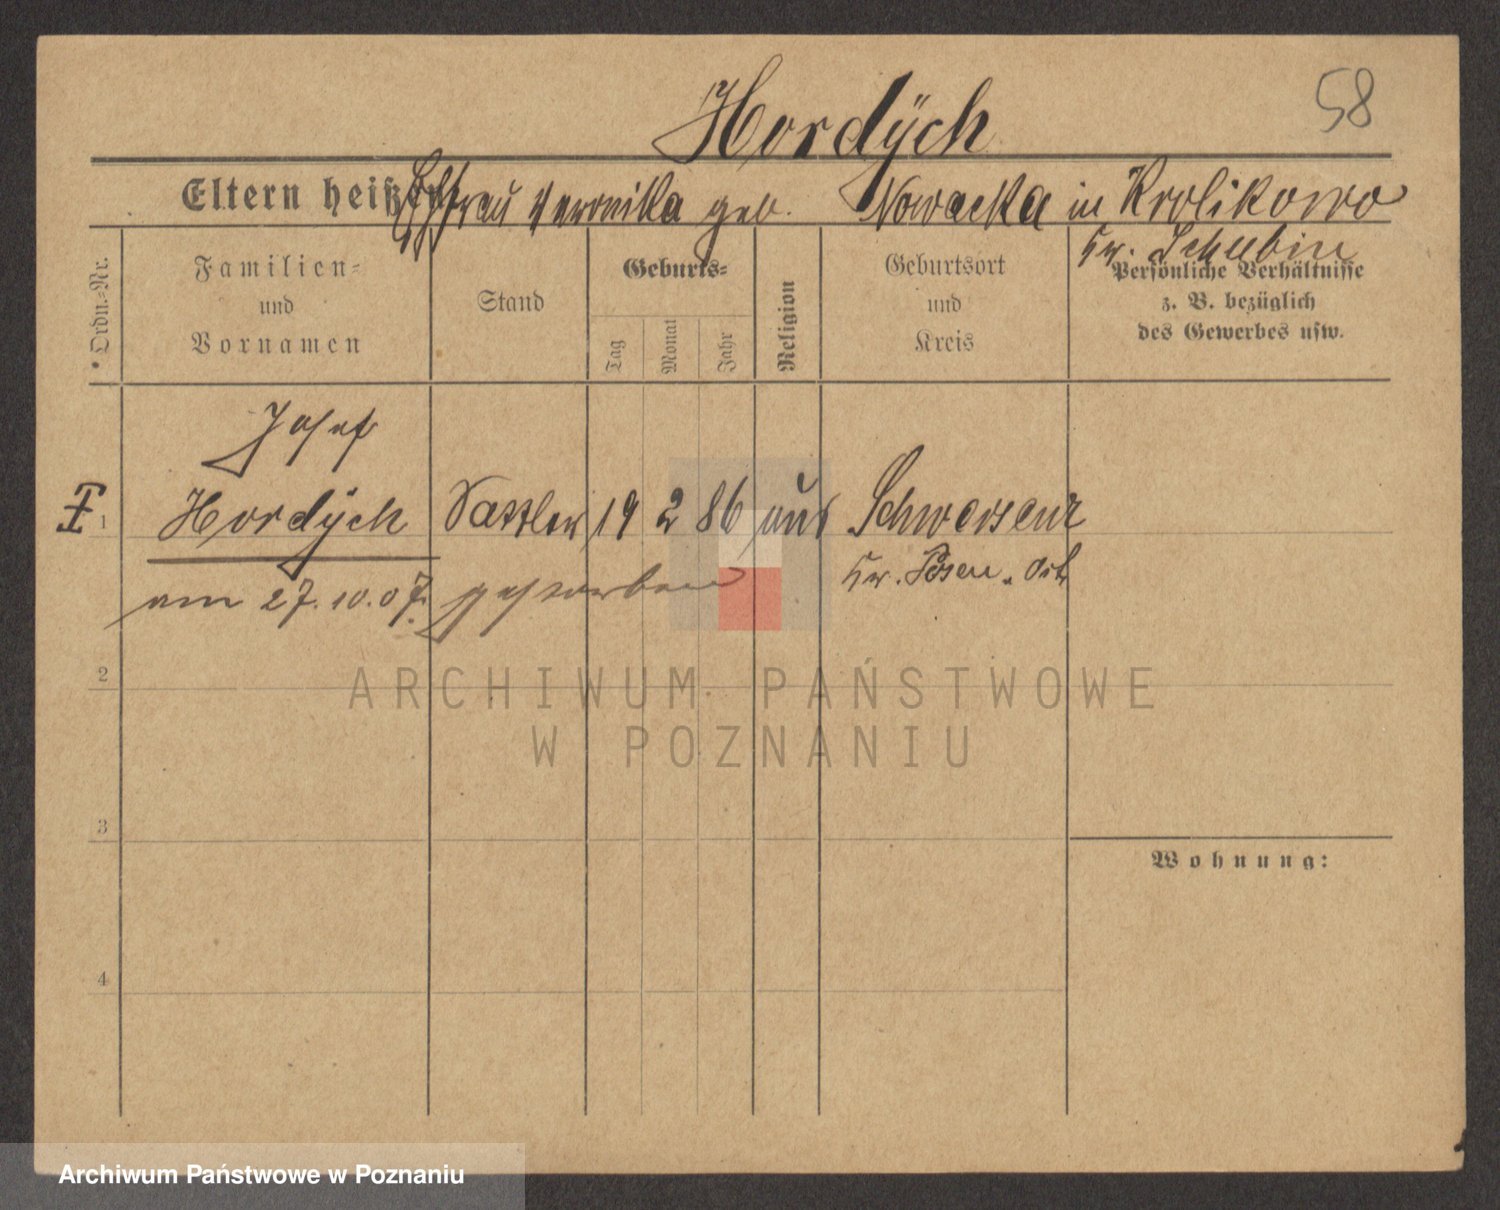 58
Hordÿch
Eltern heißen Ehefrau Veronika geb. Nowacka in Krolikowo
Kr. Schubin
Ordn.-Nr.
Familien- und Vornamen
Stand
Geburts-
Tag
Monat
Jahr
Religion
Geburtsort und Kreis
Persönliche Verhältnisse
z. B. bezüglich
des Gewerbes usw.
Josef
1 Hordÿch Sattler 19 2 86 aus Schwersenz
Kr. Posen. Ost
am 27.10.07. gestorben
2
ARCHIWUM PAŃSTWOWE
W POZNANIU
3
Wohnung:
4
Archiwum Państwowe w Poznaniu